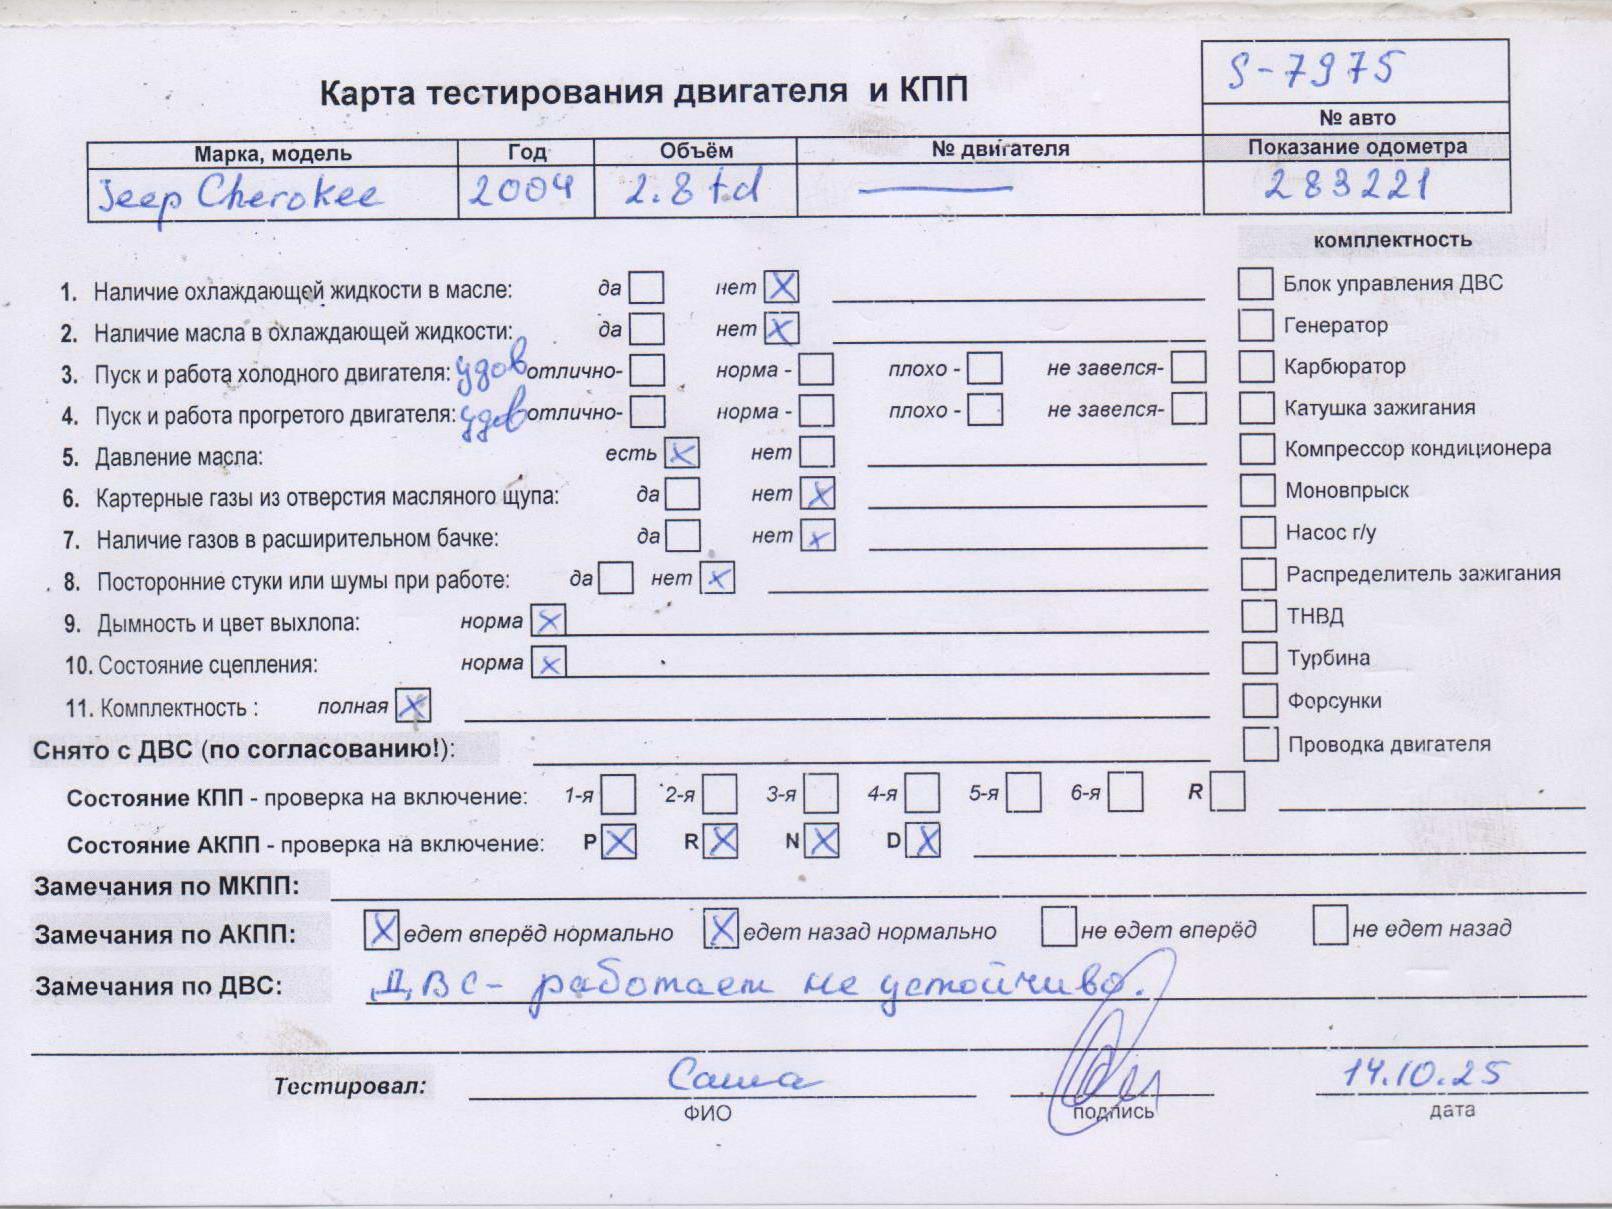 S-7975
Карта тестирования двигателя и КПП
№ авто
Марка, модель Год Объём № двигателя Показание одометра
Jeep Cherokee 2004 2.8 td 283221
комплектность
1. Наличие охлаждающей жидкости в масле: да нет X
Блок управления ДВС
2. Наличие масла в охлаждающей жидкости: да нет X
Генератор
3. Пуск и работа холодного двигателя: удов отлично- норма - плохо - не завелся-
Карбюратор
4. Пуск и работа прогретого двигателя: удов отлично- норма - плохо - не завелся-
Катушка зажигания
5. Давление масла: есть X нет
Компрессор кондиционера
6. Картерные газы из отверстия масляного щупа: да нет X
Моновпрыск
7. Наличие газов в расширительном бачке: да нет X
Насос г/у
8. Посторонние стуки или шумы при работе: да нет X
Распределитель зажигания
9. Дымность и цвет выхлопа: норма X
ТНВД
10. Состояние сцепления: норма X
Турбина
11. Комплектность : полная X
Форсунки
Снято с ДВС (по согласованию!):
Проводка двигателя
Состояние КПП - проверка на включение: 1-я 2-я 3-я 4-я 5-я 6-я R
Состояние АКПП - проверка на включение: P X R X N X D X
Замечания по МКПП:
Замечания по АКПП: X едет вперёд нормально X едет назад нормально не едет вперёд не едет назад
Замечания по ДВС: ДВС - работает не устойчиво.
Тестировал: Саша 14.10.25
ФИО подпись дата